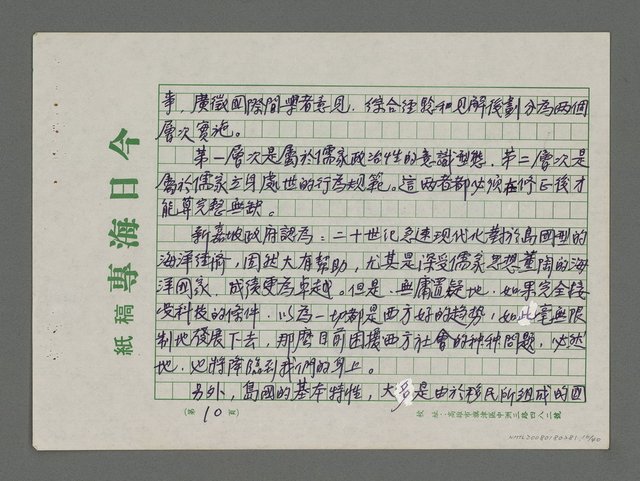 事，廣徵國際間學者意見，綜合經驗和見解後劃分為兩個
層次實施。
第一層次是屬於儒家政治性的意識型態，第二層次是
屬於儒家立身處世的行為規範。這兩者都必須在修正後才
能算完整無缺。
新嘉坡政府認為：二十世紀急速現代化對於島國型的
海洋經濟，固然大有幫助，尤其是深受儒家思想薰陶的海
洋國家，成績更為卓越。但是，無庸置疑地，如果完全接
受科技的條件，以為一切都是西方好的趨勢，如此毫無限
制地發展下去，那麼目前困擾西方社會的種種問題，必然
地，也將降臨到我們的身上。
另外，島國的基本特性，大多是由於移民所組成的國
今日海專
稿紙
(第10頁)
校址：高雄市旗津區中洲三路四八二號
NMTL20080180281, 10/40